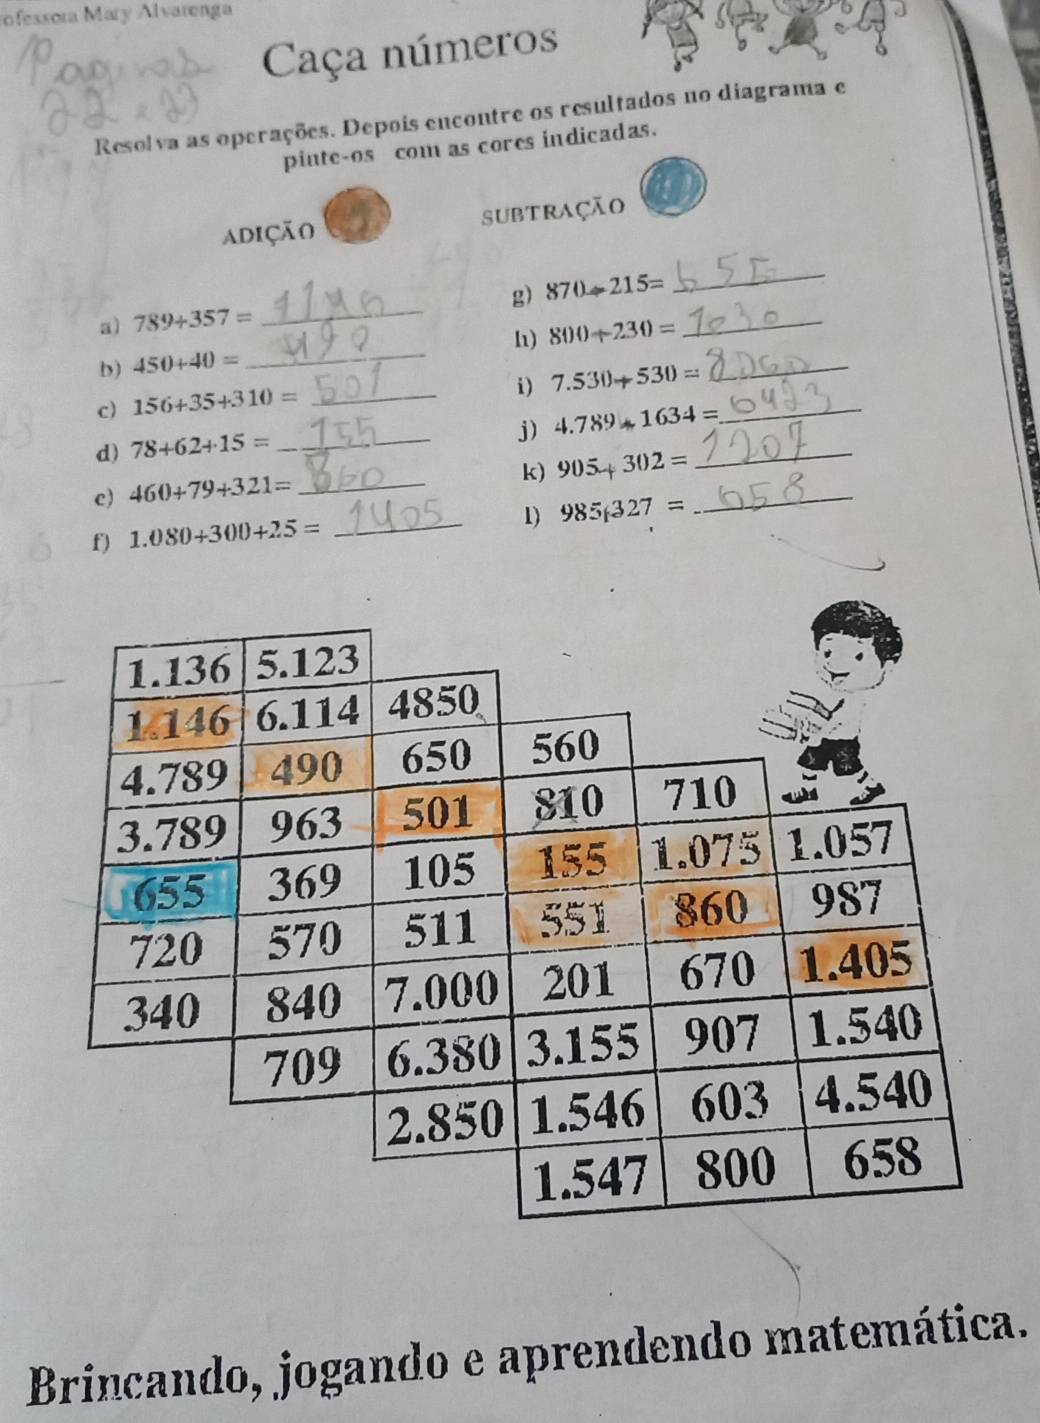 Professora Mary Alvarenga
Paginas
22 e 23
Caça números
Resolva as operações. Depois encontre os resultados no diagrama e
pinte-os com as cores indicadas.
ADIÇÃO
SUBTRAÇÃO
a) 789+357 = 1146
b) 450+40 = 490
c) 156+35+310 = 501
d) 78+62+15 = 155
e) 460+79+321= 860
f) 1.080+300+25 = 1405
g) 870-215= 655
h) 800+230 = 1030
i) 7.530+530 = 8060
j) 4.789+1634 = 6423
k) 905+302 = 1207
l) 985-327 = 658
1.136 5.123
1.146 6.114 4850
4.789 490 650 560
3.789 963 501 810 710
655 369 105 155 1.075 1.057
720 570 511 551 860 987
340 840 7.000 201 670 1.405
709 6.380 3.155 907 1.540
2.850 1.546 603 4.540
1.547 800 658
Brincando, jogando e aprendendo matemática.